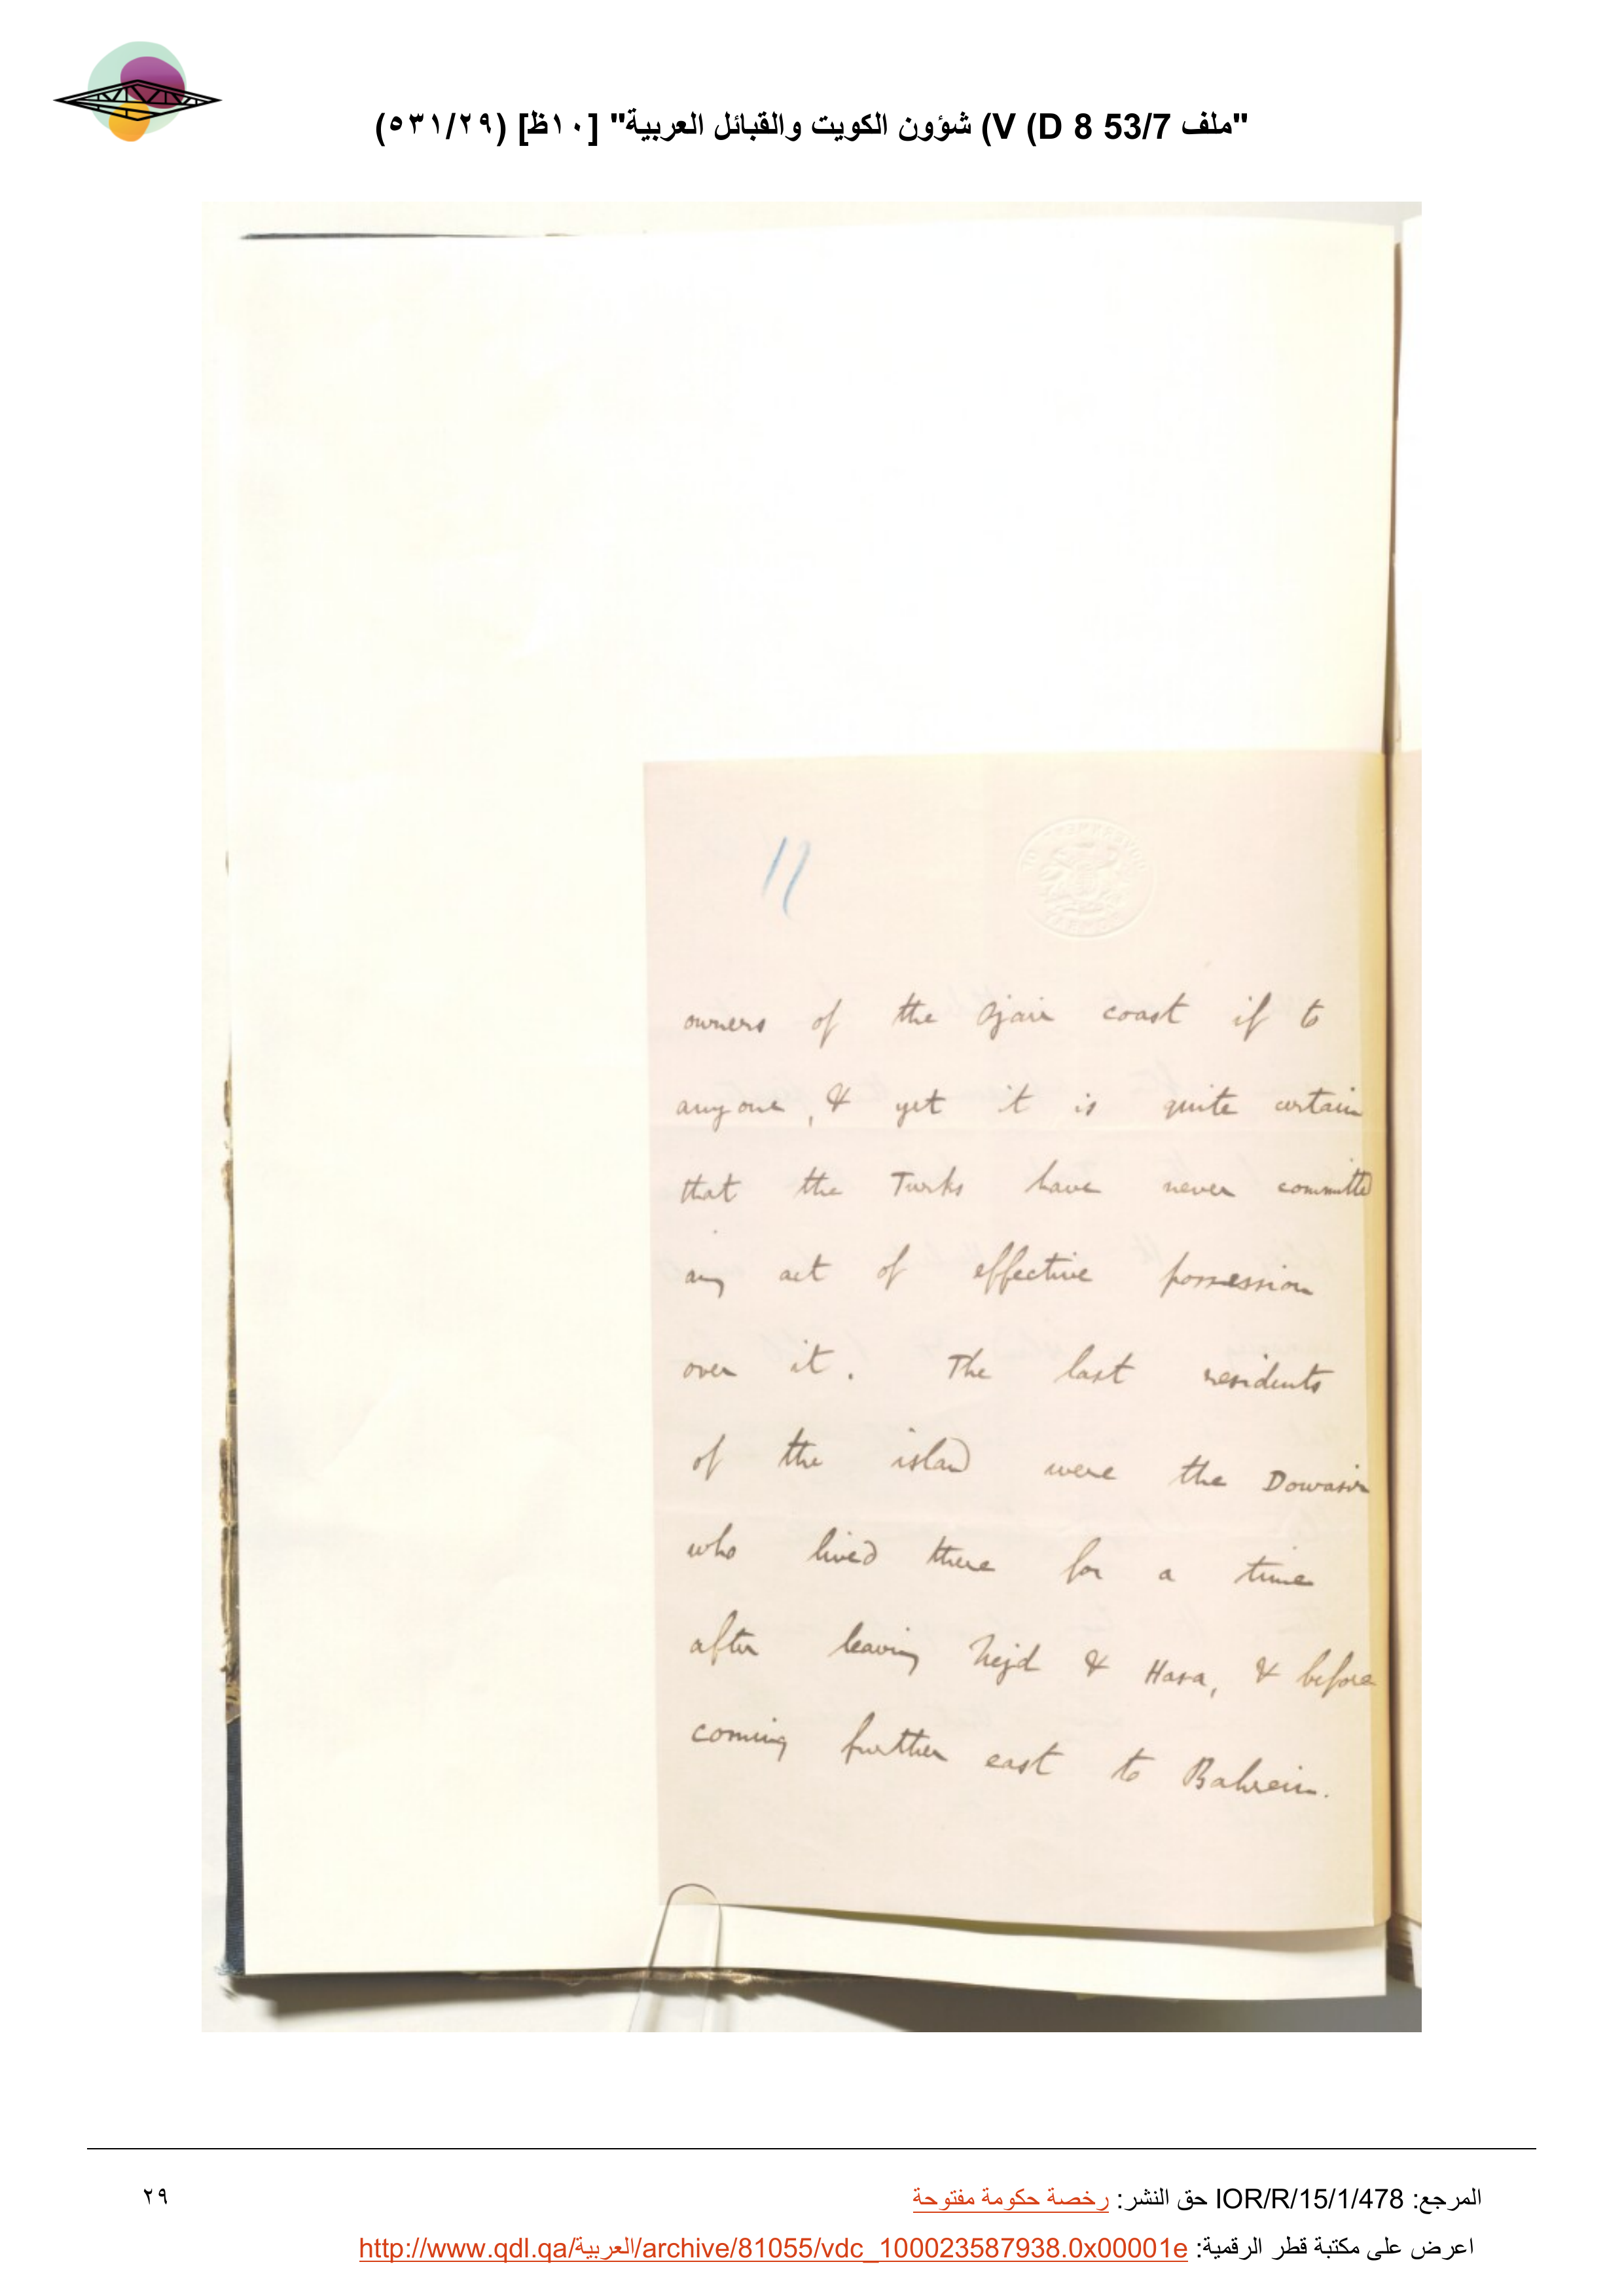 "ملف 53/7 D 8) V) شؤون الكويت والقبائل العربية" [١٠ظ] (٥٣١/٢٩)
11
owners of the Ojair coast if to
anyone, & yet it is quite certain
that the Turks have never committed
any act of effective possession
over it. The last residents
of the island were the Dowasir
who lived there for a time
after leaving Nejd & Hasa, & before
coming further east to Bahrein.
المرجع: IOR/R/15/1/478 حق النشر: رخصة حكومة مفتوحة
٢٩
اعرض على مكتبة قطر الرقمية: http://www.qdl.qa/العربية/archive/81055/vdc_100023587938.0x00001e